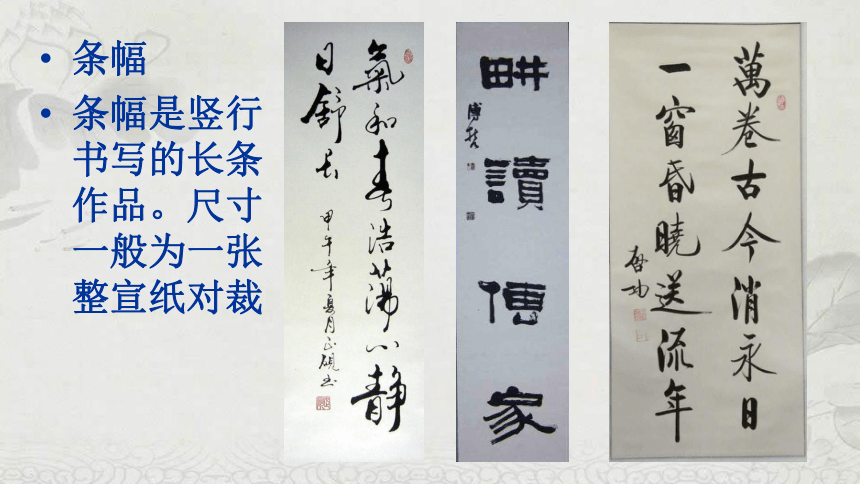 • 条幅
• 条幅是竖行
书写的长条
作品。尺寸
一般为一张
整宣纸对裁
氣和春浩蕩心静
日舒长
甲午年夏月正砚书
畊讀傳家
萬卷古今消永日
一窗昏曉送流年
启功